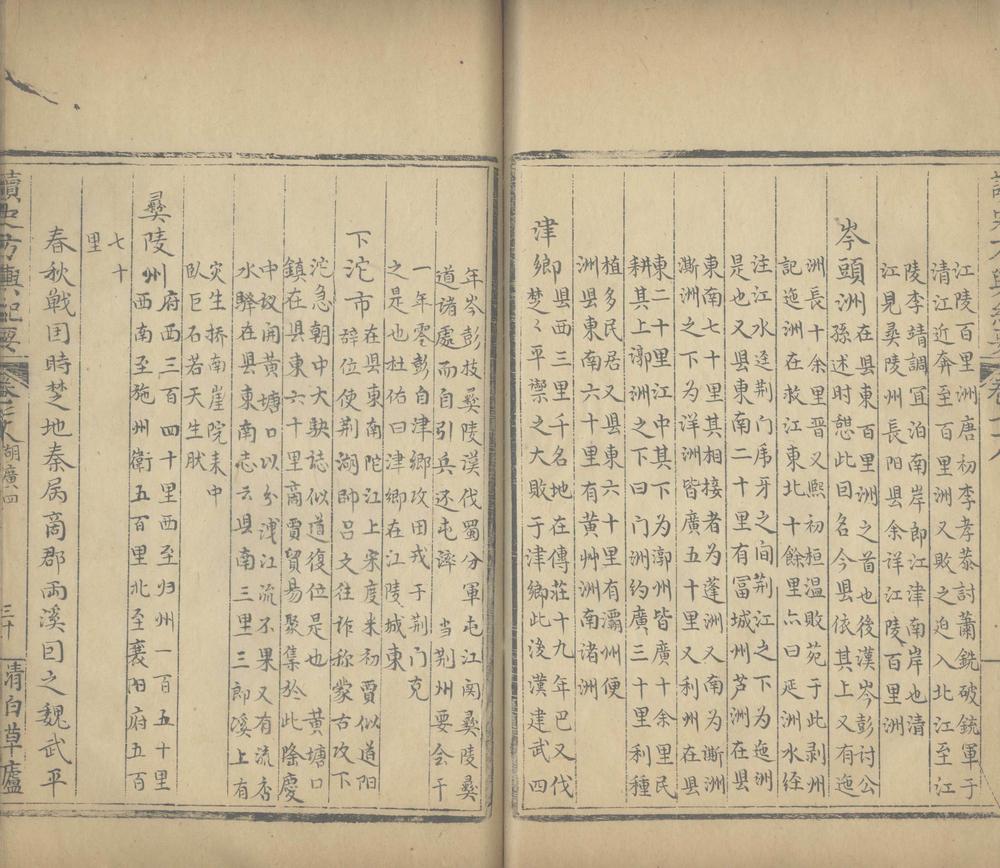 江陵百里洲唐初李孝恭討蕭銑破銑軍于
清江近奔至百里洲又敗之迫入北江至江
陵李靖調宜泊南岸郎江津南岸也清
江見彛陵州長阳县余洋江陵百里洲
岑頭洲在县東百里洲之首也後漢岑彭讨公
孫述时憇此囙名今县依其上又有迤
洲長十余里晋义熙初桓温敗苑于此剥州
記迤洲在敉江東北十餘里亦曰延洲水经
注江水迳荆门虎牙之间荆江之下为迤洲
是也又县東南二十里有冨城州芦洲在县
東南七十里其相接者为蓬洲又南为㴲洲
㴲洲之下为洋洲皆廣五十里又利州在县
東二十里江中其下为漷州皆廣十余里民
耕其上漷洲之下曰门洲约廣三十里利種
植多民居又县東六十里有灞州便
洲县東南六十里有黄州洲南诸洲
津鄉县西三里千名地在傳莊十九年巴又伐
楚〻平禦之大敗于津鄉此後漢建武四
年岑彭枝彛陵漠伐蜀分軍屯江関彛陵彛
道诸處而自引兵还屯濟 当荆州要会于
一年零彭自津鄉攻田戎于荆门克
之是也杜佑曰津鄉在江陵城東
下沱市在县東南陀江上宋度米初贾似道阳
辞位使荆湖帥吕文往祚称蒙古攻下
沱急朝中大駃誌似道復位是也 黄塘口
鎮在县東六十里商賈貿易聚集於此隆慶
中议開黄塘口以分洩江流不果又有流杏
水驛在县東南志云县南三里三郎溪上有
灾生挢南崖院耒中
臥巨石若天生肰
彛陵州府西三百四十里西至归州一百五十里
西南至施州衛五百里北至襄阳府五百
七十
里
春秋戦国時楚地秦属商郡両溪囙之魏武平
讀史方輿紀要
卷之七十八
湖廣四
三十
清白草廬